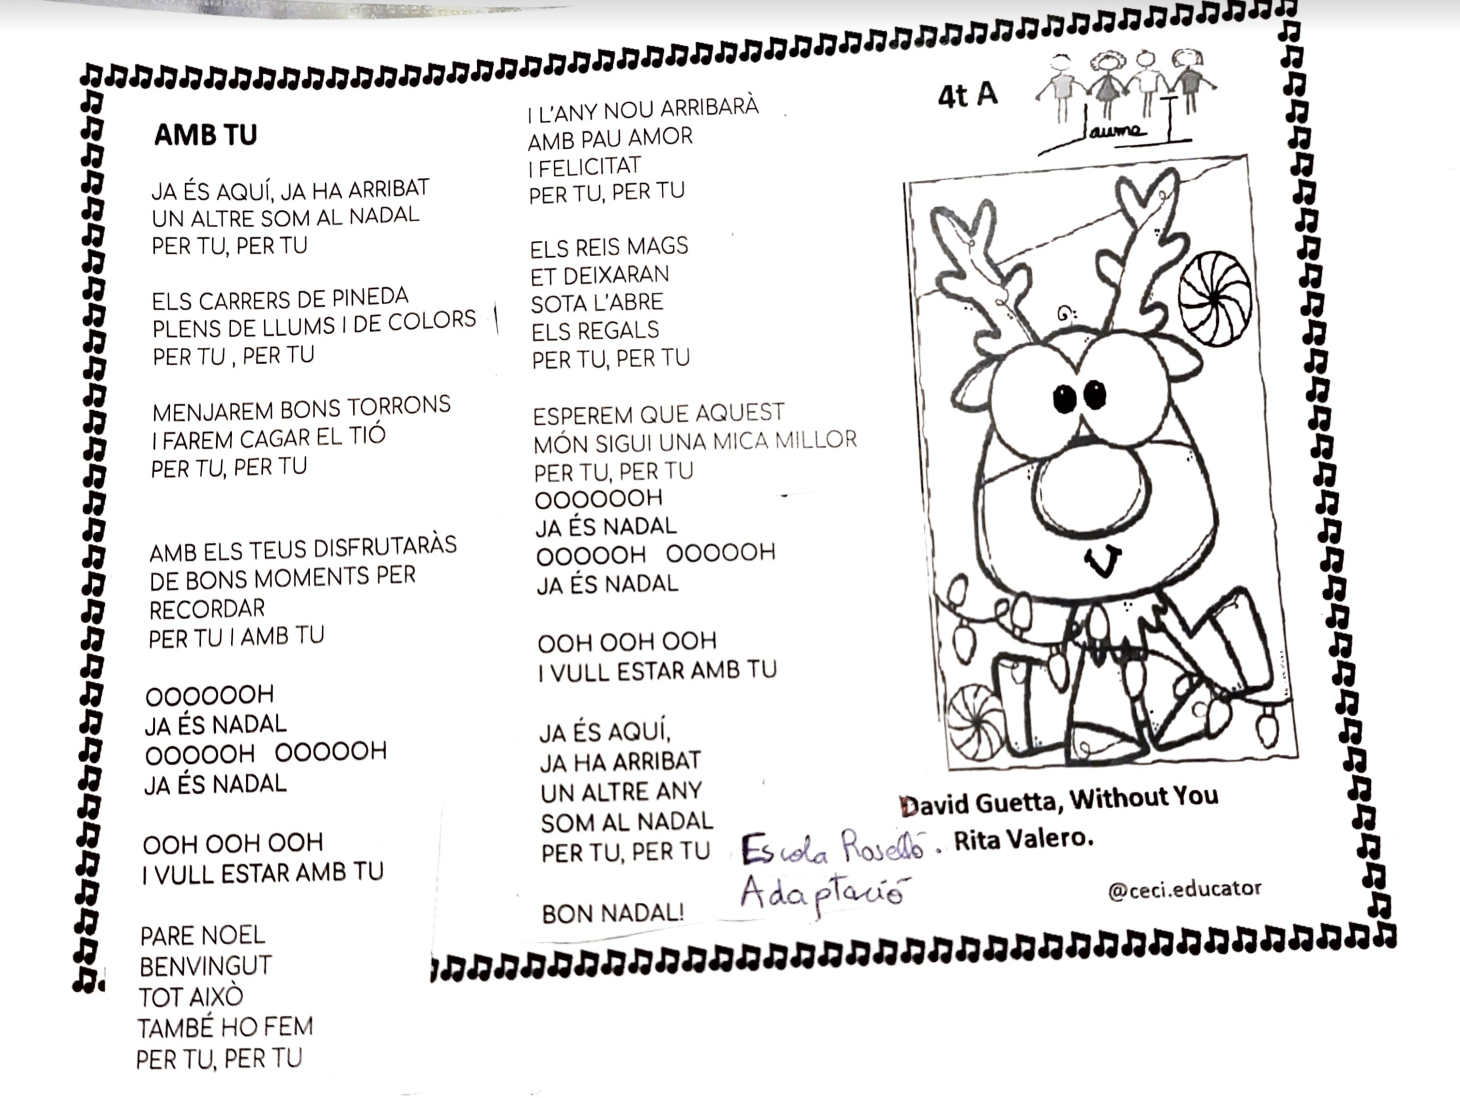 AMB TU
JA ÉS AQUÍ, JA HA ARRIBAT
UN ALTRE SOM AL NADAL
PER TU, PER TU
ELS CARRERS DE PINEDA
PLENS DE LLUMS I DE COLORS
PER TU , PER TU
MENJAREM BONS TORRONS
I FAREM CAGAR EL TIÓ
PER TU, PER TU
AMB ELS TEUS DISFRUTARÀS
DE BONS MOMENTS PER
RECORDAR
PER TU I AMB TU
OOOOOOH
JA ÉS NADAL
OOOOOH OOOOOH
JA ÉS NADAL
OOH OOH OOH
I VULL ESTAR AMB TU
PARE NOEL
BENVINGUT
TOT AIXÒ
TAMBÉ HO FEM
PER TU, PER TU
I L'ANY NOU ARRIBARÀ
AMB PAU AMOR
I FELICITAT
PER TU, PER TU
ELS REIS MAGS
ET DEIXARAN
SOTA L'ABRE
ELS REGALS
PER TU, PER TU
ESPEREM QUE AQUEST
MÓN SIGUI UNA MICA MILLOR
PER TU, PER TU
OOOOOOH
JA ÉS NADAL
OOOOOH OOOOOH
JA ÉS NADAL
OOH OOH OOH
I VULL ESTAR AMB TU
JA ÉS AQUÍ,
JA HA ARRIBAT
UN ALTRE ANY
SOM AL NADAL
PER TU, PER TU
BON NADAL!
4t A
Jaume I
David Guetta, Without You
Escola Roselló. Rita Valero.
Adaptació
@ceci.educator